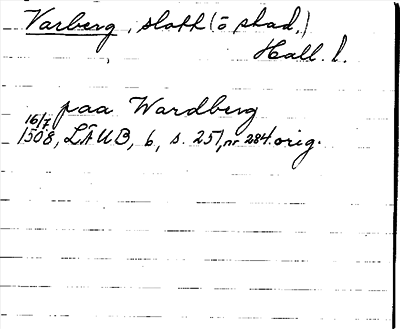 Varberg, slott (o stad,)
Hall. l.
paa Wardberg
16/7 1508, LÅUB, 6, s. 257, nr 284. orig.